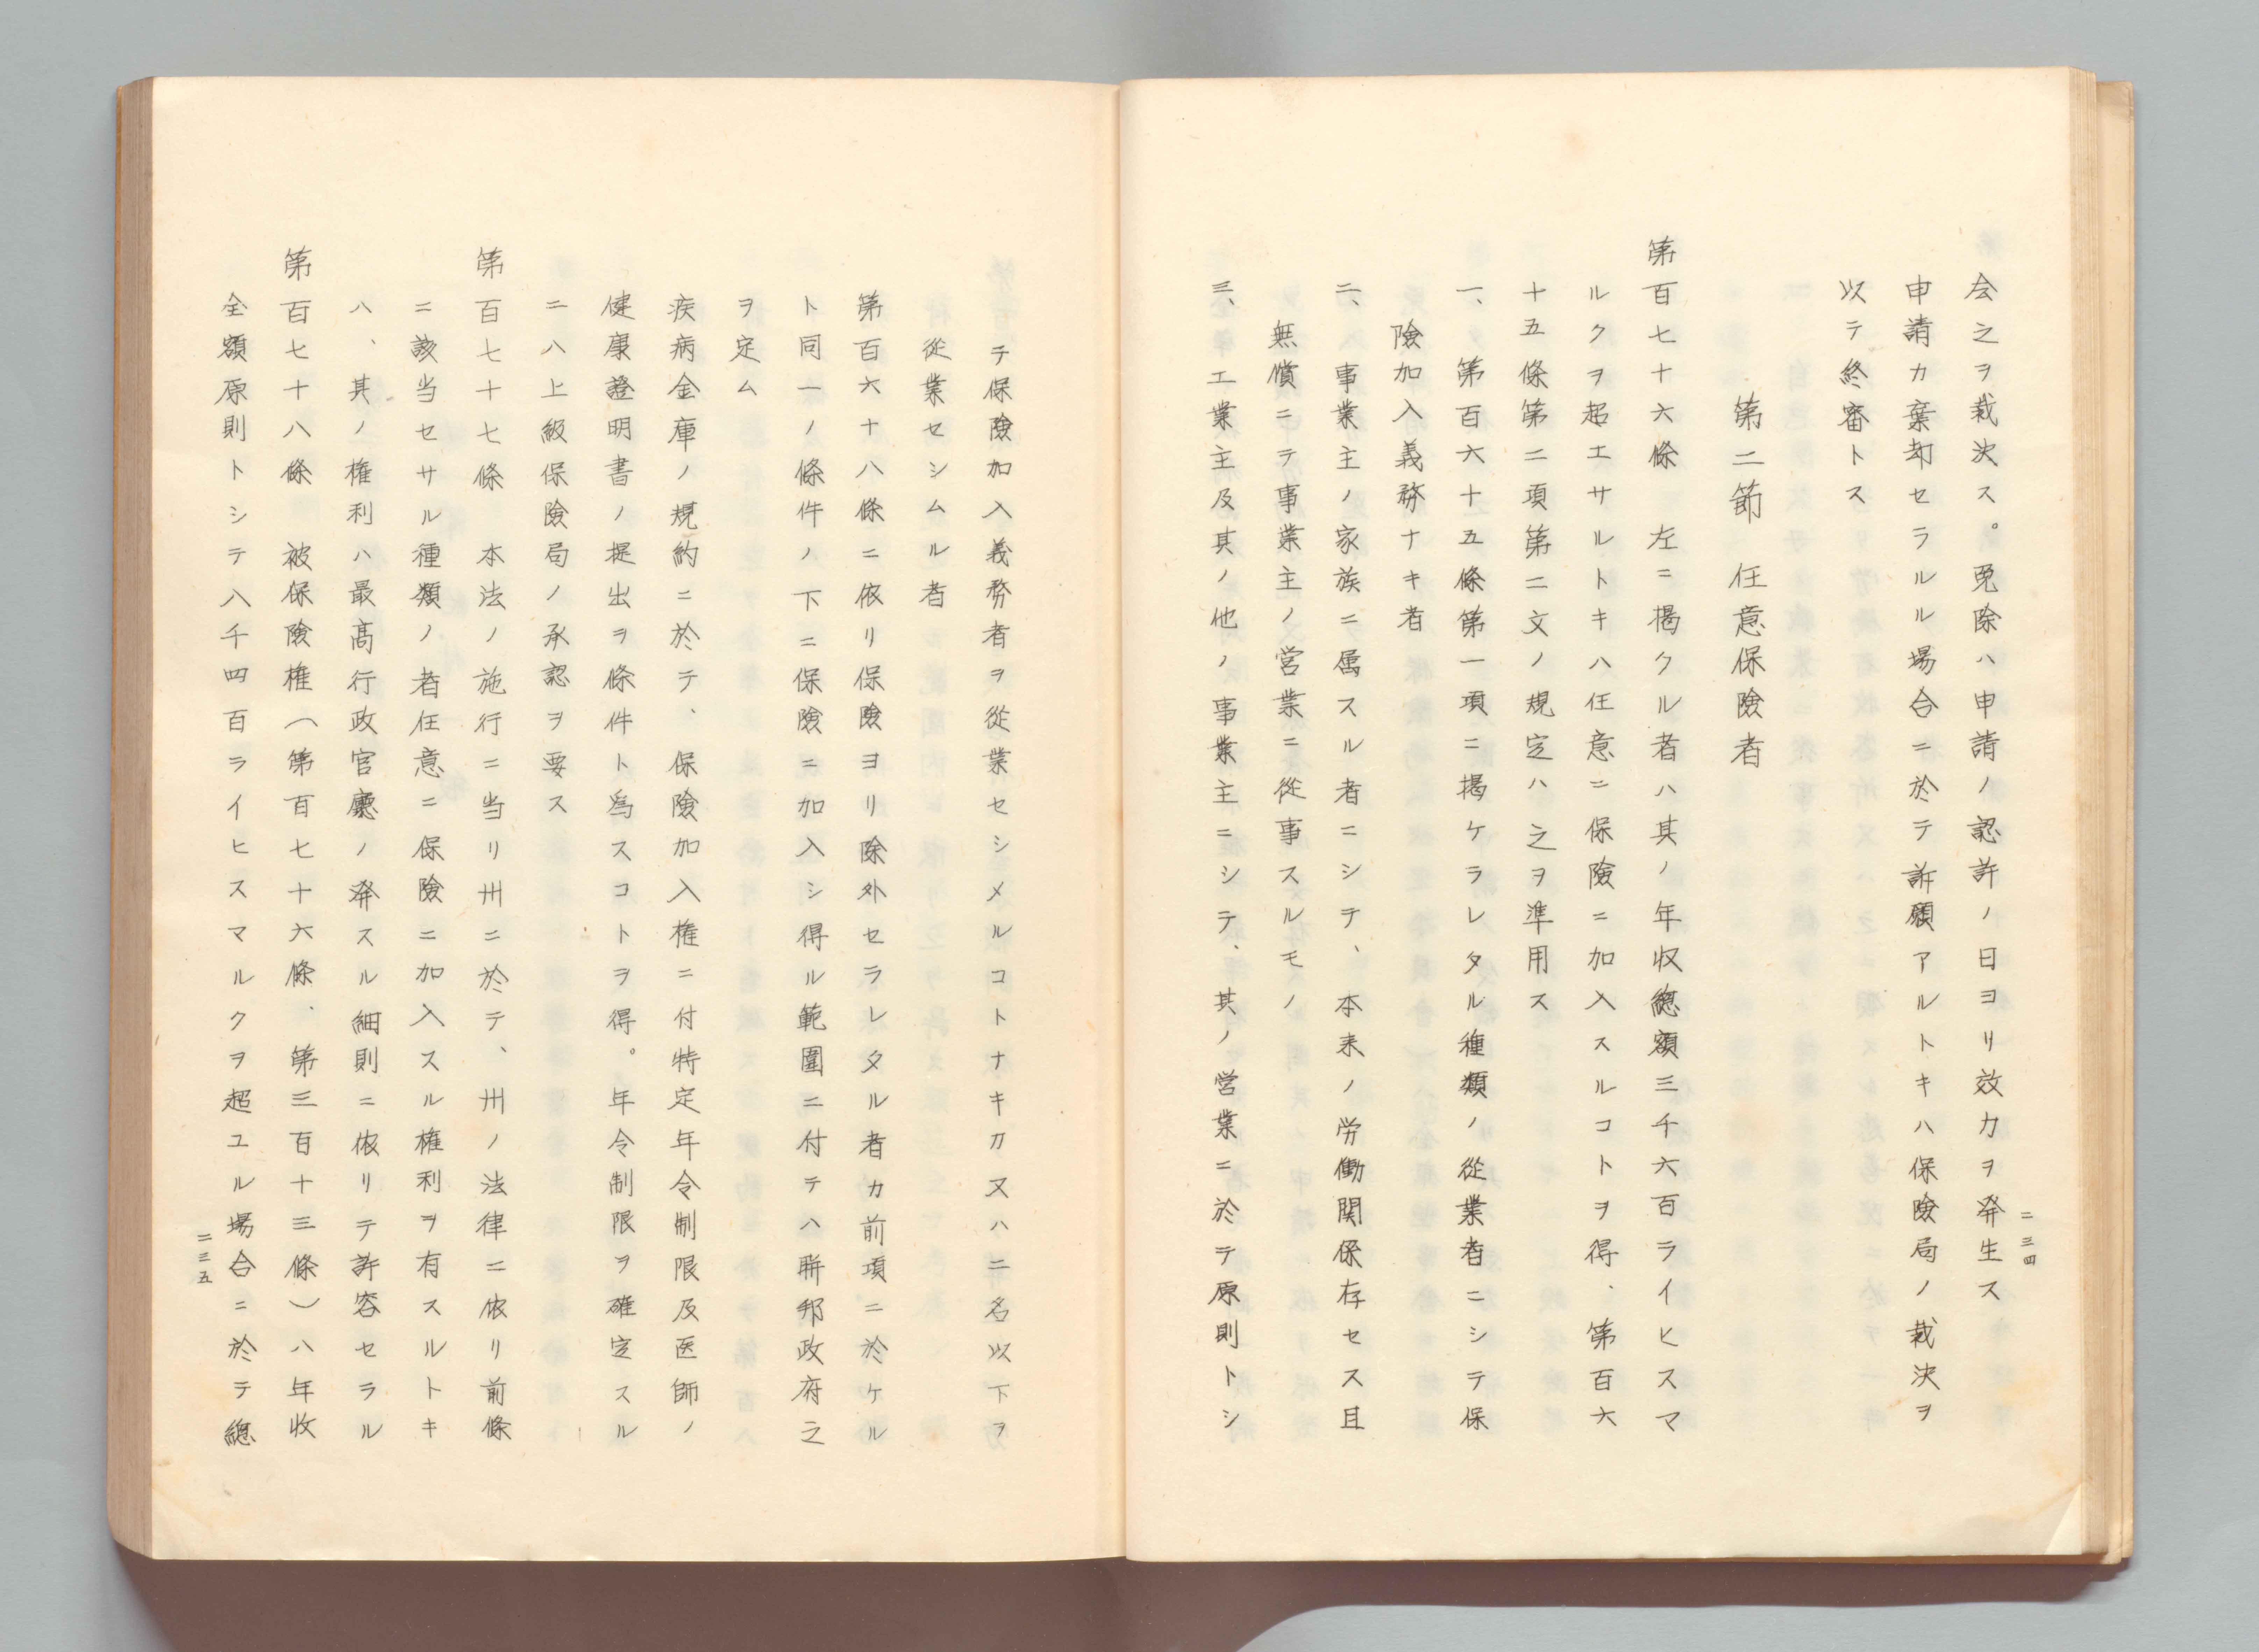 会之ヲ裁決ス。免除ハ申請ノ認許ノ日ヨリ效力ヲ発生ス
申請カ棄却セラルル場合ニ於テ訴願アルトキハ保險局ノ裁決ヲ
以テ終審トス
第二節 任意保險者
第百七十六條 左ニ揭クル者ハ其ノ年収總額三千六百ライヒスマ
ルクヲ超エサルトキハ任意ニ保險ニ加入スルコトヲ得、第百六
十五條第二項第二文ノ規定ハ之ヲ準用ス
一、第百六十五條第一項ニ揭ケラレタル種類ノ從業者ニシテ保
險加入義務ナキ者
二、事業主ノ家族ニ属スル者ニシテ、本来ノ労働関係存セス且
無償ニテ事業主ノ営業ニ從事スルモノ
三、工業主及其ノ他ノ事業主ニシテ、其ノ営業ニ於テ原則トシ
二三四
テ保險加入義務者ヲ從業セシメルコトナキカ又ハ二名以下ヲ
從業セシムル者
第百六十八條ニ依リ保險ヨリ除外セラレタル者カ前項ニ於ケル
ト同一ノ條件ノ下ニ保險ニ加入シ得ル範圍ニ付テハ聯邦政府之
ヲ定ム
疾病金庫ノ規約ニ於テ、保險加入権ニ付特定年令制限及医師ノ
健康證明書ノ提出ヲ條件ト爲スコトヲ得。年令制限ヲ確定スル
ニハ上級保險局ノ承認ヲ要ス
第百七十七條 本法ノ施行ニ当リ州ニ於テ、州ノ法律ニ依リ前條
ニ該当セサル種類ノ者任意ニ保險ニ加入スル権利ヲ有スルトキ
ハ、其ノ権利ハ最高行政官廳ノ発スル細則ニ依リテ許容セラル
第百七十八條 被保險権（第百七十六條、第三百十三條）ハ年收
全額原則トシテ八千四百ライヒスマルクヲ超ユル場合ニ於テ總
二三五